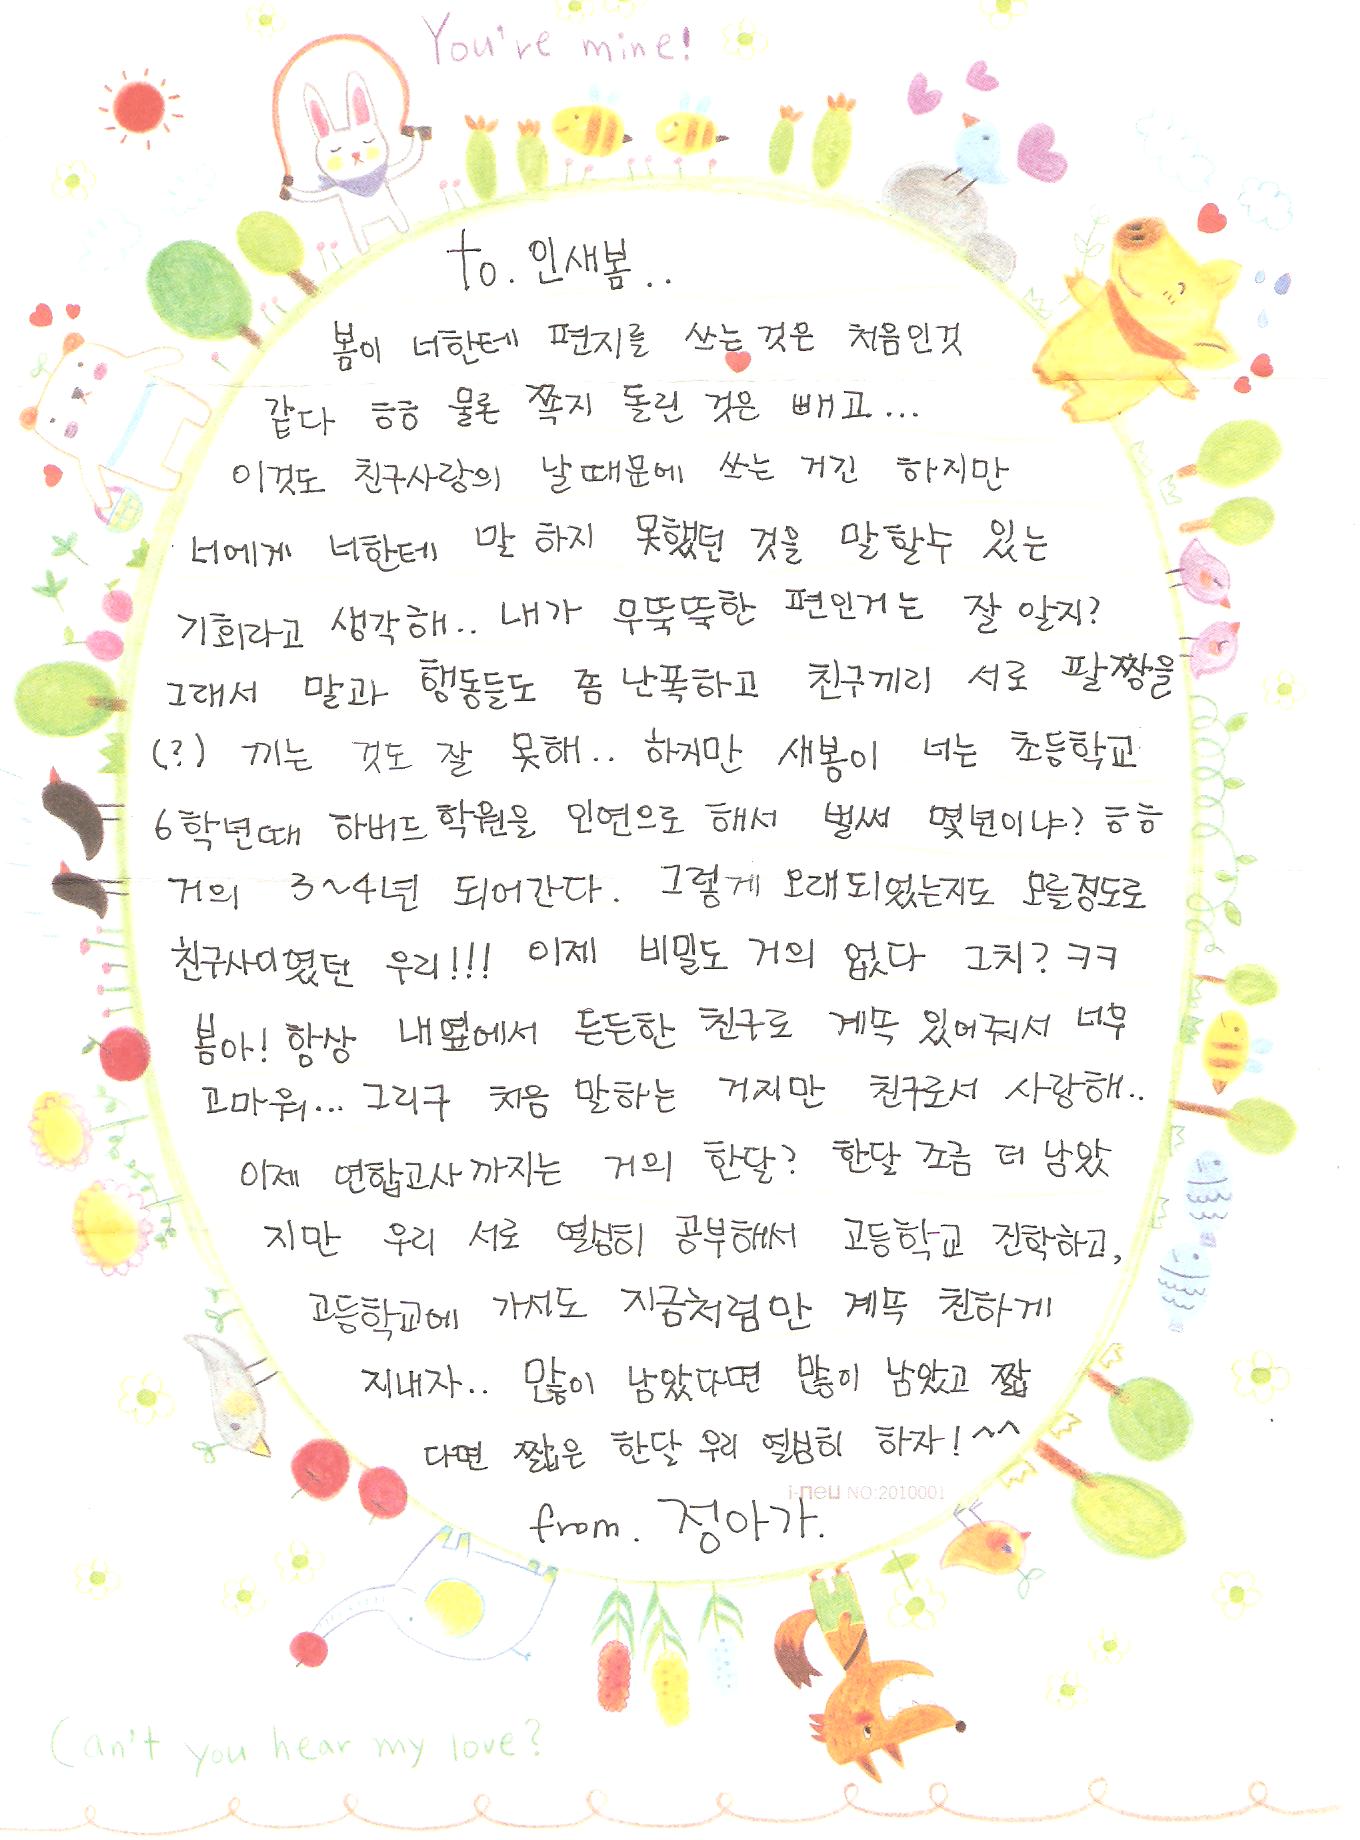 You're mine!
to. 인새봄..
봄이 너한테 편지를 쓰는 것은 처음인것
같다 ㅎㅎ 물론 쪽지 돌린 것은 빼고...
이것도 친구사랑의 날때문에 쓰는 거긴 하지만
너에게 너한테 말 하지 못했던 것을 말할수 있는
기회라고 생각해.. 내가 무뚝뚝한 편인거는 잘 알지?
그래서 말과 행동들도 쫌 난폭하고 친구끼리 서로 팔짱을
(?) 끼는 것도 잘 못해.. 하지만 새봄이 너는 초등학교
6학년때 하버드 학원을 인연으로 해서 벌써 몇년이냐? ㅎㅎ
거의 3~4년 되어간다. 그렇게 오래되었는지도 모를정도로
친구사이였던 우리!!! 이제 비밀도 거의 없다 그치? ㅋㅋ
봄아! 항상 내옆에서 든든한 친구로 계쏙 있어줘서 너무
고마워... 그리구 처음 말하는 거지만 친구로서 사랑해..
이제 연합고사까지는 거의 한달? 한달 조금 더 남았
지만 우리 서로 열심히 공부해서 고등학교 진학하고,
고등학교에 가서도 지금처럼만 계쏙 친하게
지내자.. 많이 남았다면 많이 남았고 짧
다면 짧은 한달 우리 열심히 하자! ^^
i-neu NO:2010001
from. 정아가.
Can't you hear my love?